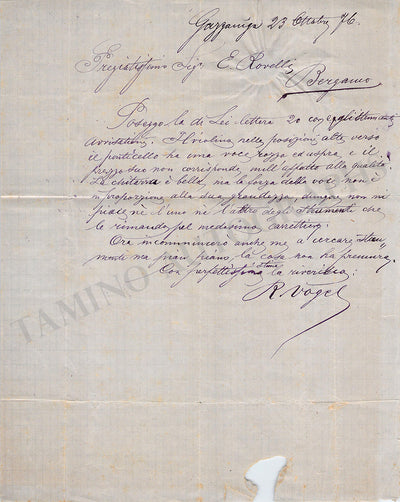 Gazzaniga 23 Ottobre 76.
Pregiatissimo Sigr E. Rovelli
Bergamo
Posseggo la di Lei lettera 20 con gli strumenti
avvisatimi. Il violino nelle posizioni alte verso
il ponticello ha una voce rozza ed aspra e il
prezzo suo non corrisponde nell'effatto alla qualità.
La chitarra è bella, ma la forza della voce non è
in proporzione alla sua grandezza, dunque non mi
piace nè l'uno nè l'altro degli Strumenti che
le rimando pel medesimo carettiere.
Ora incomincierò anche me a cercare stru-
menti ma pian piano la cosa non ha premura.
Con perfettissima stima la riverisco:
R. Vogel
TAMINO